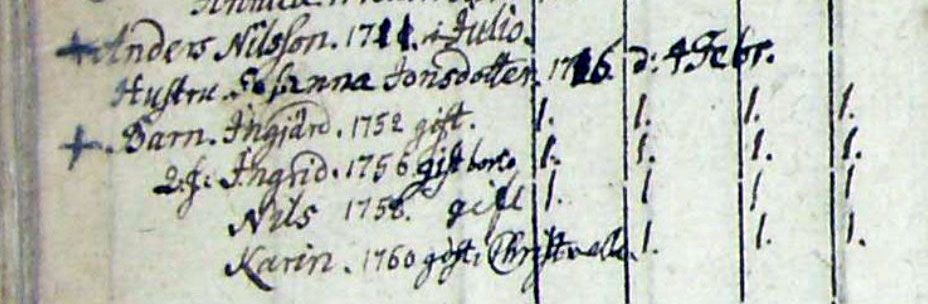 Anders Nilsson. 1711. i Julio.
Hustru Johanna Jonsdotter. 1716 d: 4 Febr.
Barn. Ingjärd. 1752 gift. 1. 1. 1. 1.
Ingrid. 1756 gift borto 1. 1. 1. 1.
Nils 1758. gift 1. 1 1 1
Karin. 1760 gift i 1. 1. 1.